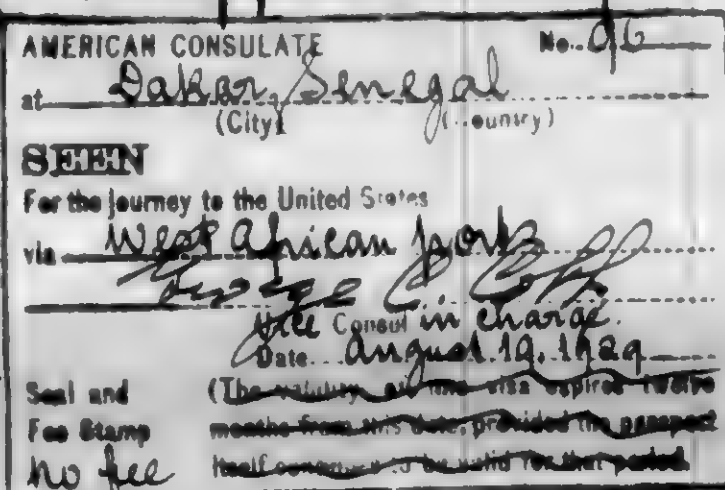 AMERICAN CONSULATE No. 96
at Dakar, Senegal
(City) (Country)
SEEN
For the journey to the United States
via West African ports
George C. Cobb
Vice Consul in charge.
Date August 19, 1929
Seal and (The validity of this visa expires twelve
Fee Stamp months from this date, provided the passport
No fee itself continues to be valid for that period.